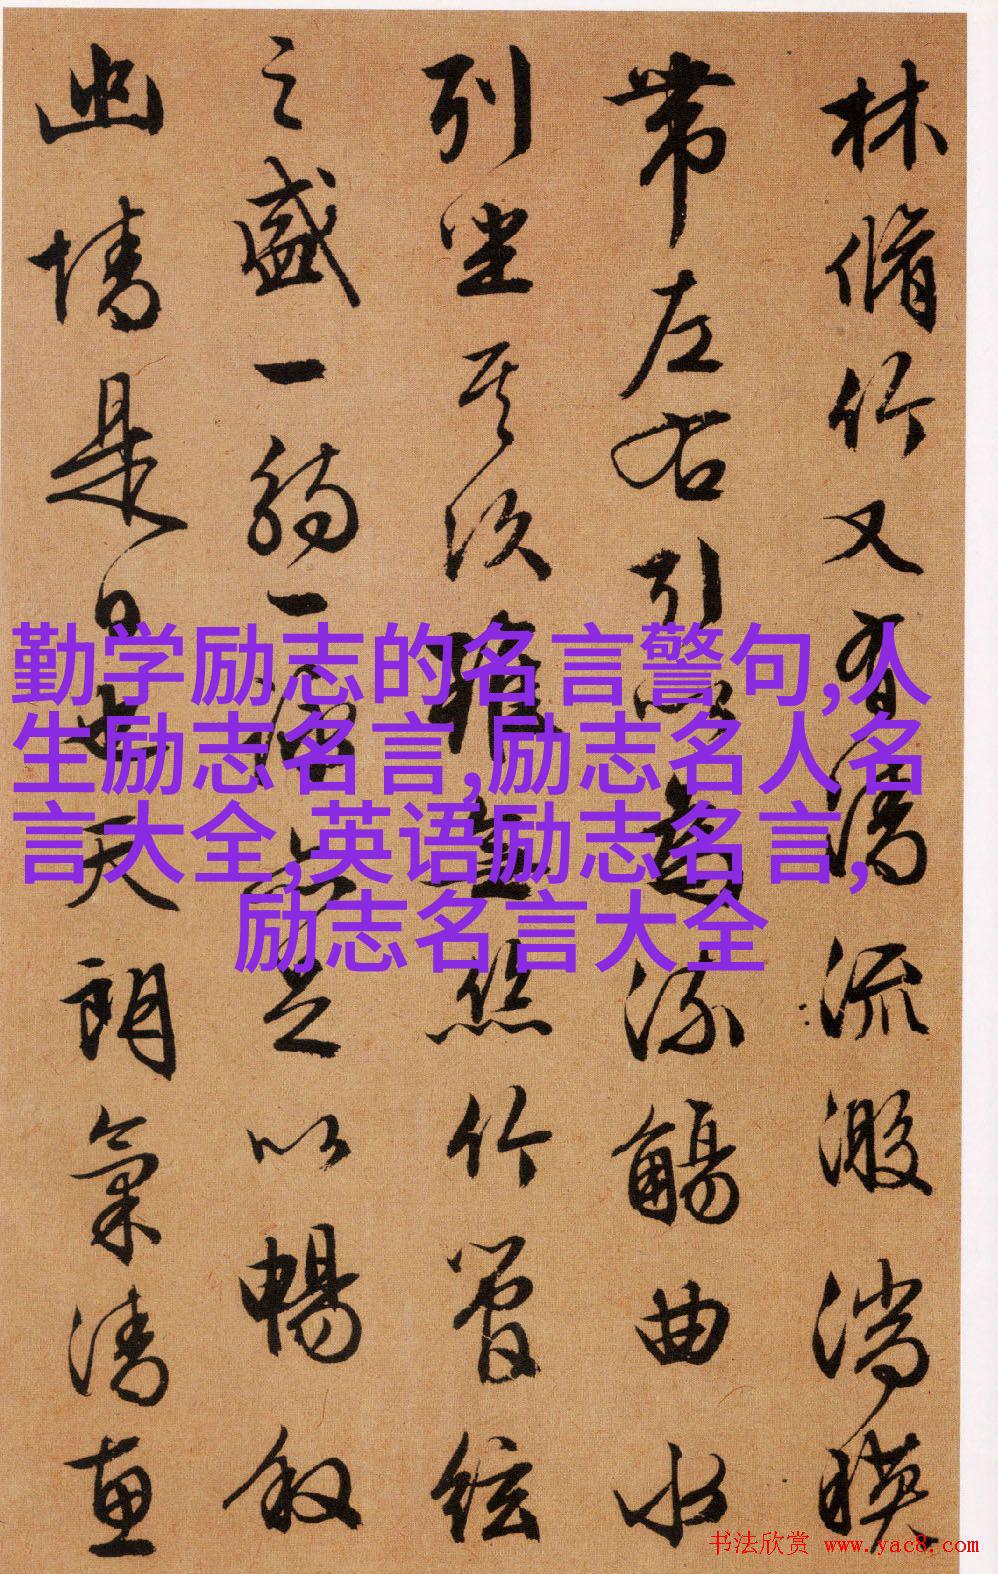 林脩竹又有清流激湍暎
帶左右引以為流觴曲水
列坐其次雖無絲竹管絃
之盛一觴一詠亦足以暢叙
幽情是日也天朗氣清惠
勤学励志的名言警句,人
生励志名言,励志名人名
言大全,英语励志名言,
励志名言大全
书法欣赏 www.yac8.com